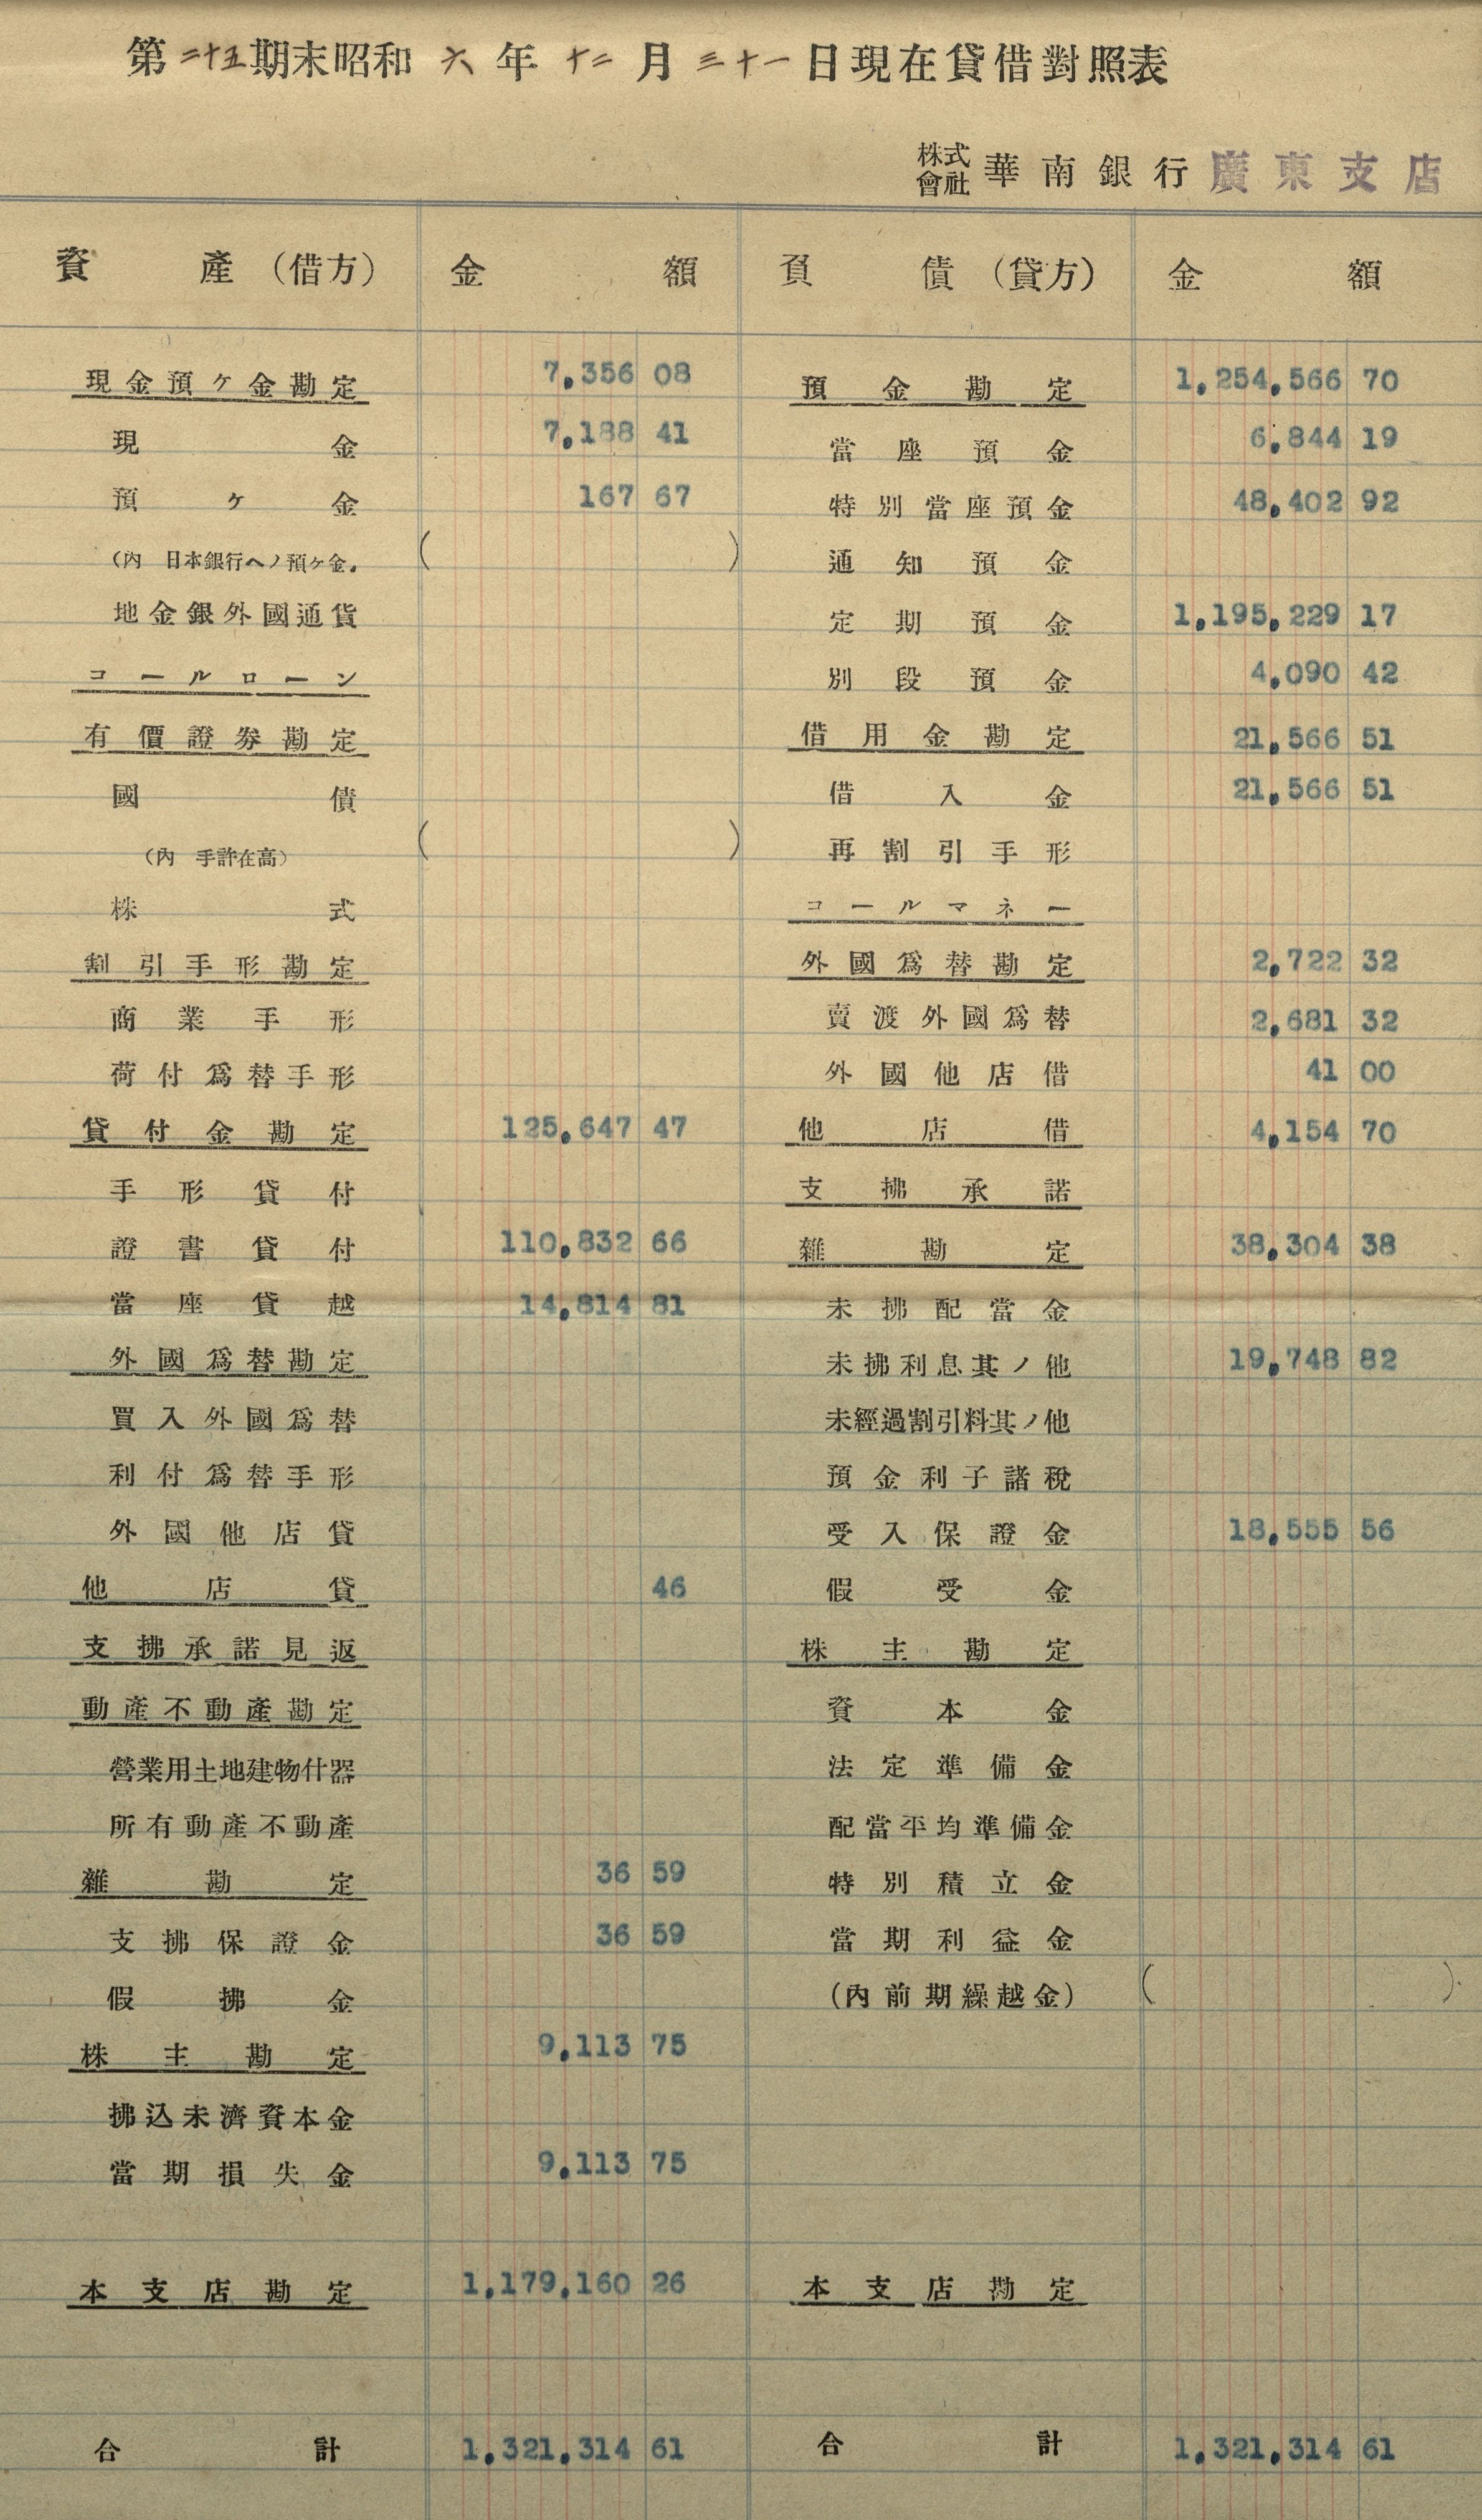 第二十五期末昭和六年十二月三十一日現在貸借對照表
株式會社華南銀行廣東支店
資產(借方) 金額 負債(貸方) 金額
現金預ケ金勘定 7,356 08 預金勘定 1,254,566 70
現金 7,188 41 當座預金 6,844 19
預ケ金 167 67 特別當座預金 48,402 92
(內 日本銀行ヘノ預ケ金. ( ) 通知預金
地金銀外國通貨 定期預金 1,195,229 17
コールローン 別段預金 4,090 42
有價證券勘定 借用金勘定 21,566 51
國債 借入金 21,566 51
(內 手許在高) ( ) 再割引手形
株式 コールマネー
割引手形勘定 外國爲替勘定 2,722 32
商業手形 賣渡外國爲替 2,681 32
荷付爲替手形 外國他店借 41 00
貸付金勘定 125,647 47 他店借 4,154 70
手形貸付 支拂承諾
證書貸付 110,832 66 雜勘定 38,304 38
當座貸越 14,814 81 未拂配當金
外國爲替勘定 未拂利息其ノ他 19,748 82
買入外國爲替 未經過割引料其ノ他
利付爲替手形 預金利子諸稅
外國他店貸 受入保證金 18,555 56
他店貸 46 假受金
支拂承諾見返 株主勘定
動產不動產勘定 資本金
營業用土地建物什器 法定準備金
所有動產不動產 配當平均準備金
雜勘定 36 59 特別積立金
支拂保證金 36 59 當期利益金
假拂金 (內前期繰越金) ( )
株主勘定 9,113 75
拂込未濟資本金
當期損失金 9,113 75
本支店勘定 1,179,160 26 本支店勘定
合計 1,321,314 61 合計 1,321,314 61